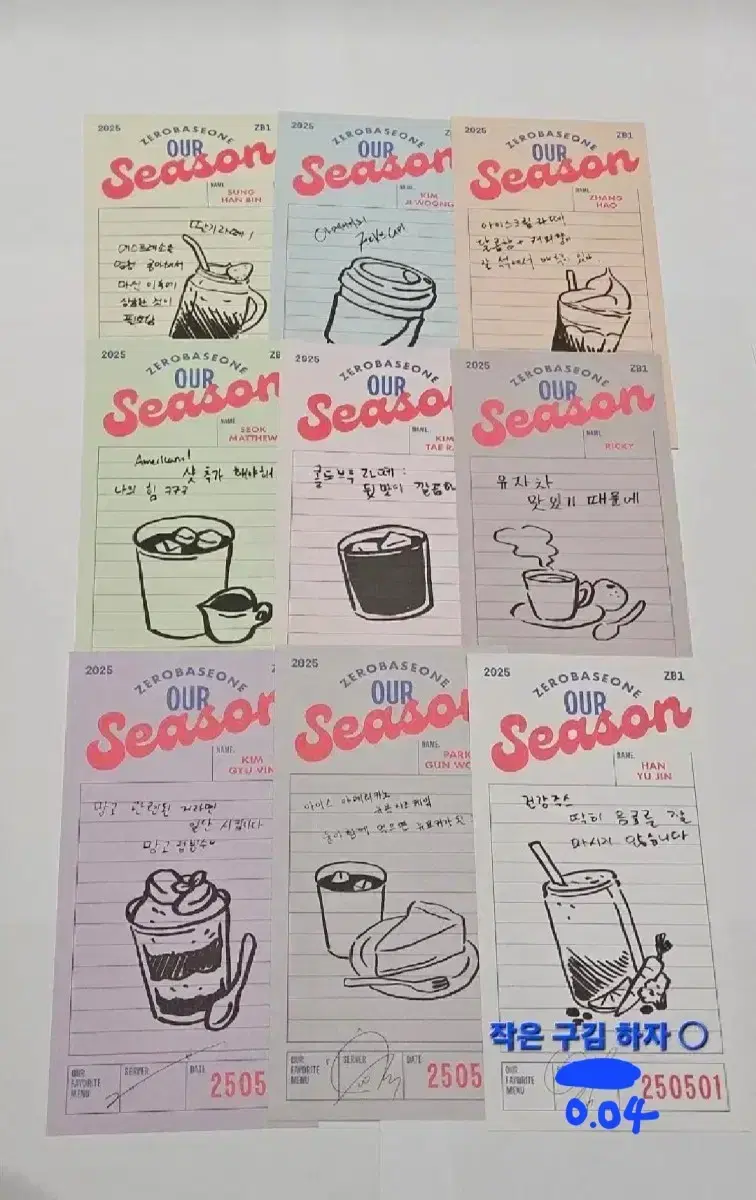 2025
ZB1
ZEROBASEONE
OUR
Season
NAME.
SUNG
HAN BIN
딸기라떼!
에스프레소를
마신 이후에
상큼한 것이
필요함
2025
ZEROBASEONE
OUR
Season
NAME.
KIM
JI WOONG
아메리카노
2025
ZB1
ZEROBASEONE
OUR
Season
NAME.
ZHANG
HAO
아이스크림 라떼
달콤함 + 커피향이
잘 섞여서 맛있
2025
ZEROBASEONE
OUR
Season
NAME.
SEOK
MATTHEW
샷 추가 해야해
나의 힘 ㅋㅋㅋ
2025
ZEROBASEONE
OUR
Season
NAME.
KIM
TAE R
콜드브루 라떼 :
뒷맛이 깔끔하
2025
ZB1
ZEROBASEONE
OUR
Season
NAME.
RICKY
유자차
맛있기 때문에
2025
ZEROBASEONE
OUR
Season
NAME.
KIM
GYU VIN
망고 관련된 거라면
일단 시킵니다
망고
2025
ZEROBASEONE
OUR
Season
NAME.
PARK
GUN WO
아이스 아메리카노
뉴욕치즈케익
둘이 함께 먹으면 뉴요커가 된
2025
ZB1
ZEROBASEONE
OUR
Season
NAME.
HAN
YU JIN
건강주스
딱히 음료를 잘
마시지 않습니다
OUR
FAVORITE
MENU
SERVER
DATE
2505
OUR
FAVORITE
MENU
SERVER
DATE
2505
작은 구김 하자 ○
OUR
FAVORITE
MENU
250501
0.04